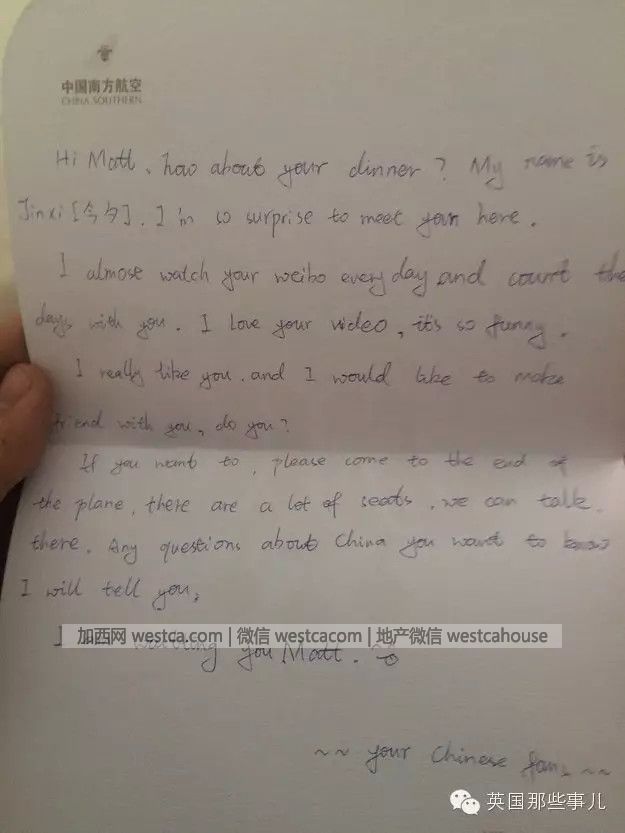 中国南方航空
CHINA SOUTHERN
Hi Matt, hao about your dinner? My name is
Jinxi [今夕]. I'm so surprise to meet you here.
I almose watch your weibo everyday and count the
days with you. I love your video, it's so funny.
I really like you. and I would like to make
friend with you, do you?
If you want to, please come to the end of
the plane, there are a lot of seats, we can talk
there. Any questions about China you want to know
I will tell you,
加西网 westca.com | 微信 westcacom | 地产微信 westcahouse
I waitting you Matt.
~~ your Chinese fans ~~
英国那些事儿